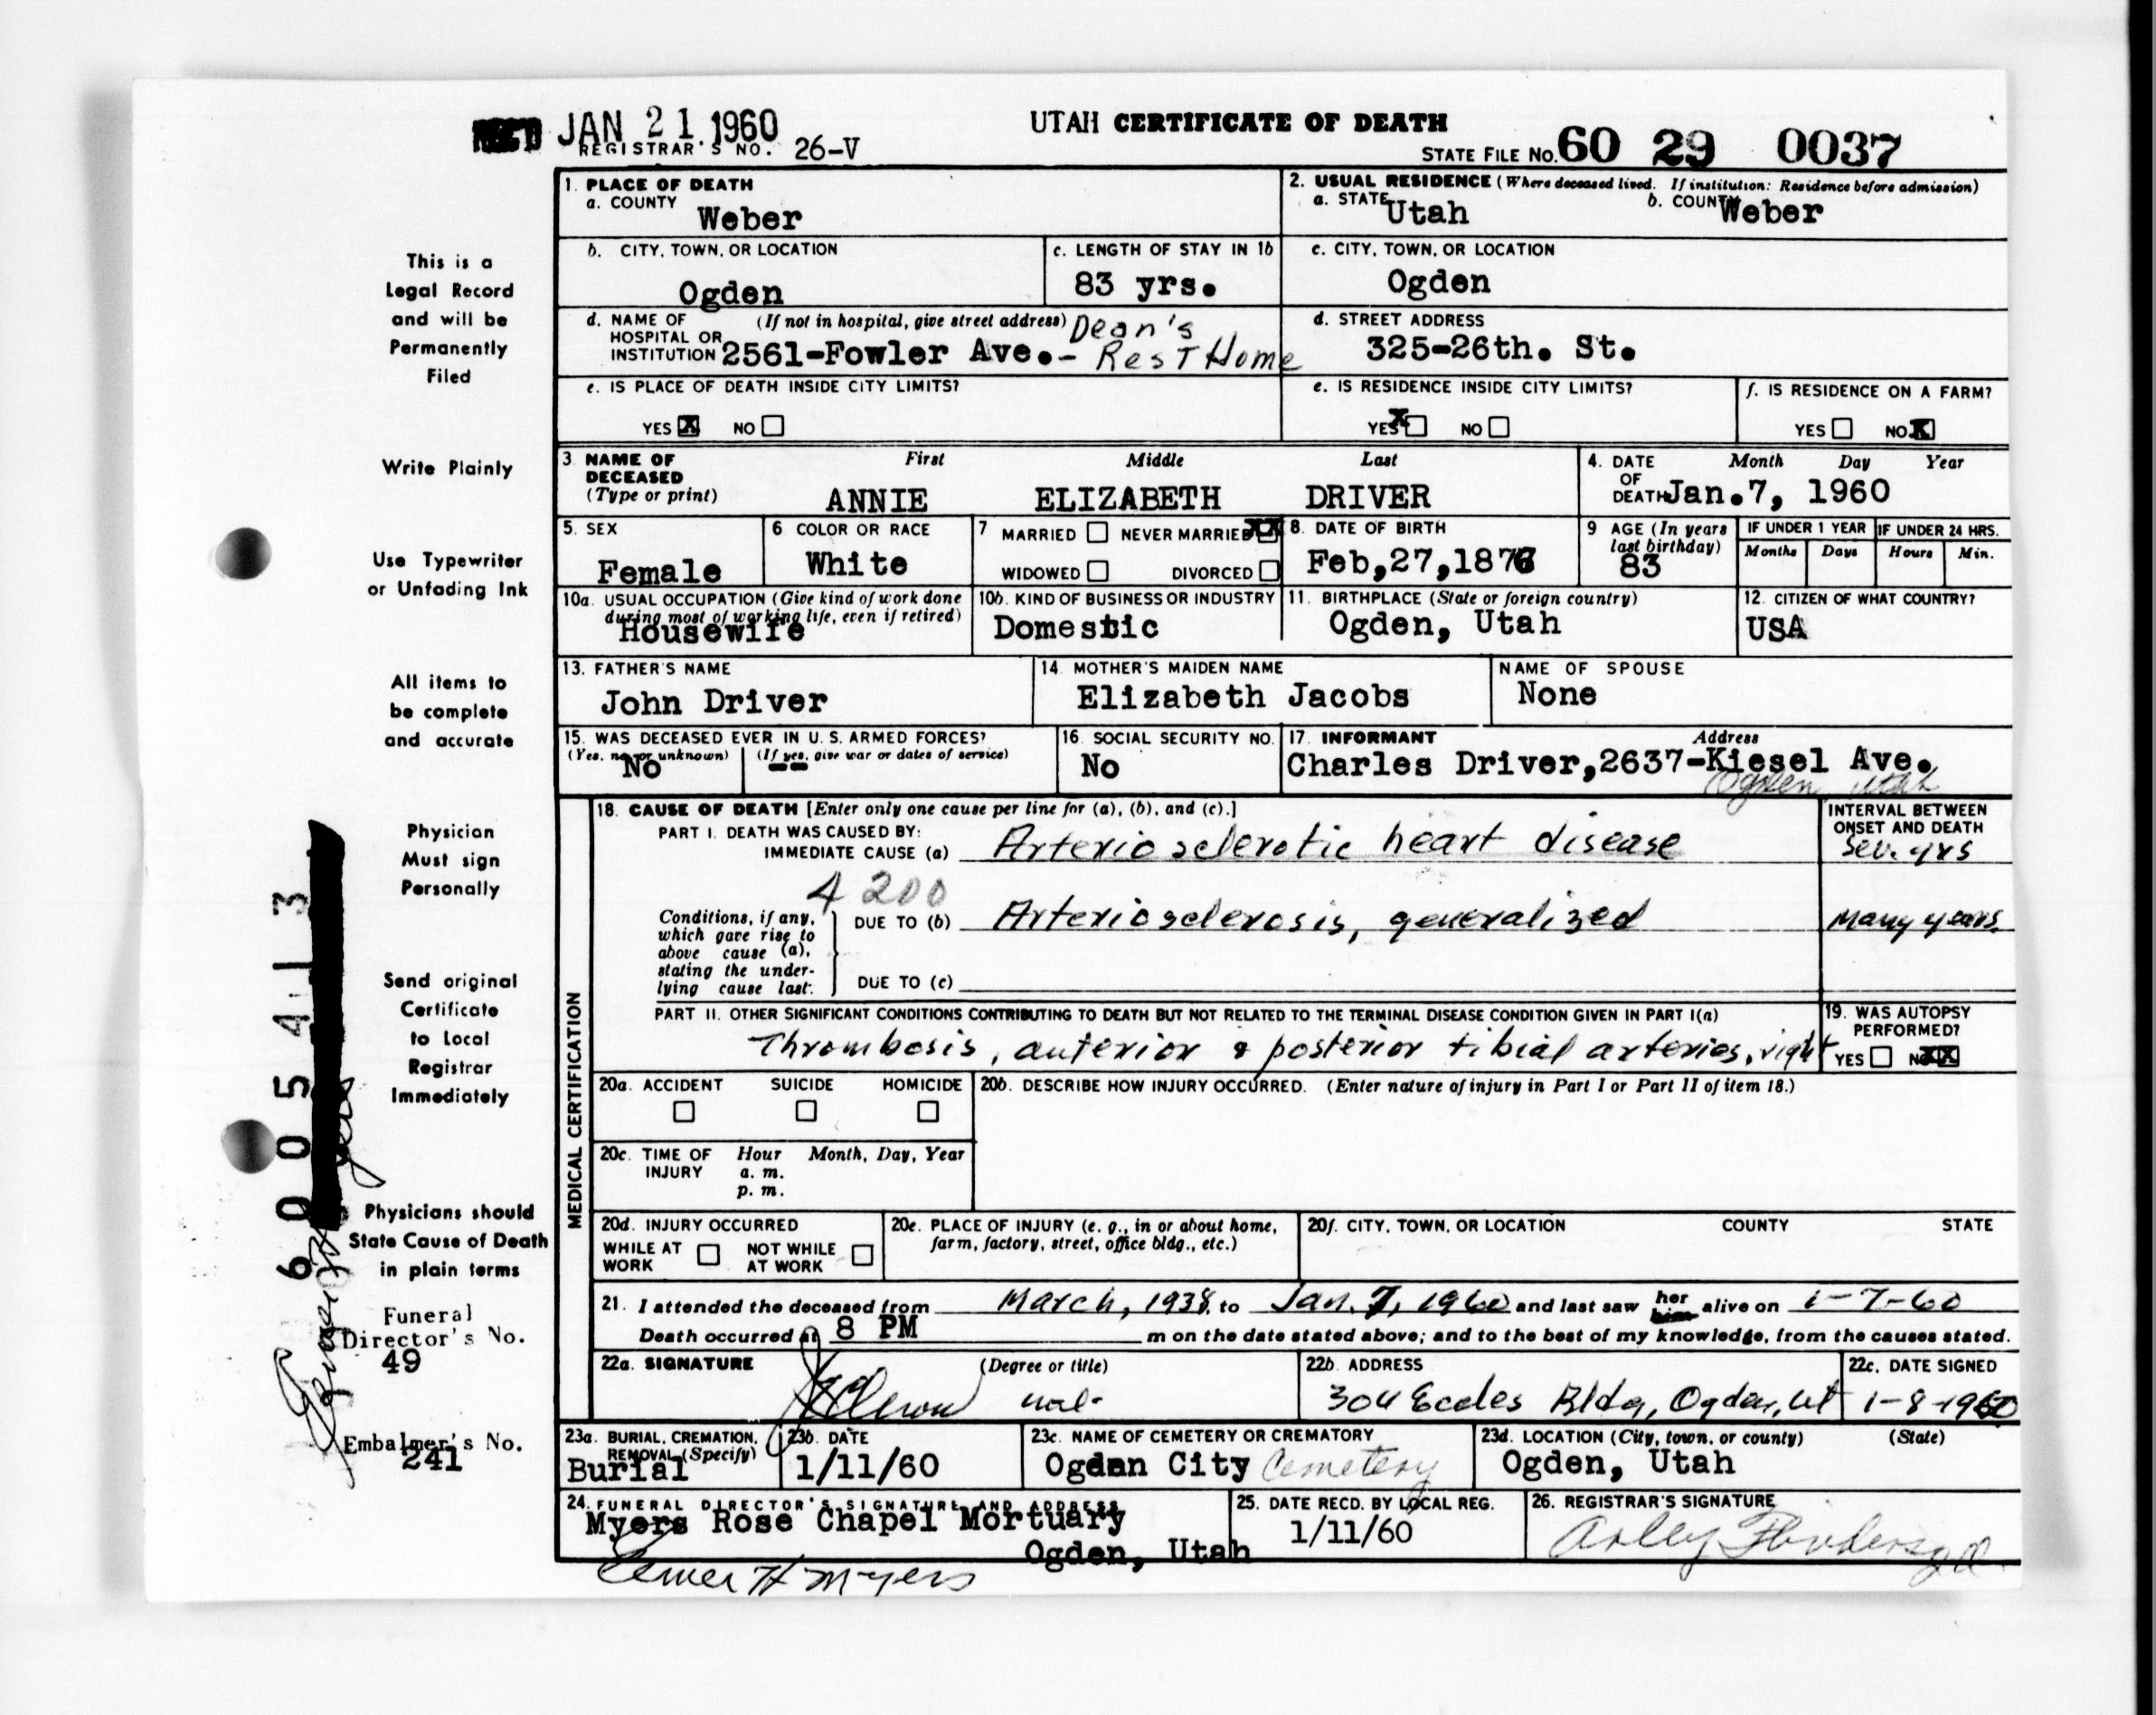 REC'D JAN 21 1960
REGISTRAR'S NO. 26-V
UTAH CERTIFICATE OF DEATH
STATE FILE NO. 60 29 0037
This is a
Legal Record
and will be
Permanently
Filed
Write Plainly
Use Typewriter
or Unfading Ink
All items to
be complete
and accurate
Physician
Must sign
Personally
Send original
Certificate
to Local
Registrar
Immediately
Physicians should
State Cause of Death
in plain terms
Funeral
Director's No.
49
Embalmer's No.
241
6005413
1. PLACE OF DEATH
a. COUNTY
Weber
2. USUAL RESIDENCE (Where deceased lived. If institution: Residence before admission)
a. STATE Utah b. COUNTY Weber
b. CITY, TOWN, OR LOCATION
Ogden
c. LENGTH OF STAY IN 1b
83 yrs.
c. CITY, TOWN, OR LOCATION
Ogden
d. NAME OF (If not in hospital, give street address)
HOSPITAL OR
INSTITUTION 2561-Fowler Ave.- Dean's
Rest Home
d. STREET ADDRESS
325-26th. St.
e. IS PLACE OF DEATH INSIDE CITY LIMITS?
YES X NO
e. IS RESIDENCE INSIDE CITY LIMITS?
YES X NO
f. IS RESIDENCE ON A FARM?
YES NO X
3. NAME OF DECEASED (Type or print)
First Middle Last
ANNIE ELIZABETH DRIVER
4. DATE OF DEATH Month Day Year
Jan.7, 1960
5. SEX
Female
6. COLOR OR RACE
White
7 MARRIED NEVER MARRIED XX
WIDOWED DIVORCED
8. DATE OF BIRTH
Feb,27,1876
9 AGE (In years last birthday)
83
IF UNDER 1 YEAR IF UNDER 24 HRS.
Months Days Hours Min.
10a. USUAL OCCUPATION (Give kind of work done during most of working life, even if retired)
Housewife
10b. KIND OF BUSINESS OR INDUSTRY
Domestic
11. BIRTHPLACE (State or foreign country)
Ogden, Utah
12. CITIZEN OF WHAT COUNTRY?
USA
13. FATHER'S NAME
John Driver
14. MOTHER'S MAIDEN NAME
Elizabeth Jacobs
NAME OF SPOUSE
None
15. WAS DECEASED EVER IN U. S. ARMED FORCES?
(Yes, no, or unknown) (If yes, give war or dates of service)
No --
16. SOCIAL SECURITY NO.
No
17. INFORMANT Address
Charles Driver,2637-Kiesel Ave.
Ogden Utah
MEDICAL CERTIFICATION
18. CAUSE OF DEATH [Enter only one cause per line for (a), (b), and (c).]
INTERVAL BETWEEN ONSET AND DEATH
PART I. DEATH WAS CAUSED BY:
IMMEDIATE CAUSE (a) Arteriosclerotic heart disease Sev. yrs
4200
Conditions, if any,
which gave rise to
above cause (a),
stating the under-
lying cause last.
DUE TO (b) Arteriosclerosis, generalized Many years.
DUE TO (c)
PART II. OTHER SIGNIFICANT CONDITIONS CONTRIBUTING TO DEATH BUT NOT RELATED TO THE TERMINAL DISEASE CONDITION GIVEN IN PART I(a)
Thrombosis, anterior & posterior tibial arteries, right
19. WAS AUTOPSY PERFORMED?
YES NO XX
20a. ACCIDENT SUICIDE HOMICIDE
20b. DESCRIBE HOW INJURY OCCURRED. (Enter nature of injury in Part I or Part II of item 18.)
20c. TIME OF INJURY Hour Month, Day, Year
a. m.
p. m.
20d. INJURY OCCURRED
WHILE AT WORK NOT WHILE AT WORK
20e. PLACE OF INJURY (e. g., in or about home, farm, factory, street, office bldg., etc.)
20f. CITY, TOWN, OR LOCATION COUNTY STATE
21. I attended the deceased from March, 1938, to Jan. 7, 1960 and last saw her him alive on 1-7-60
Death occurred at 8 PM m on the date stated above; and to the best of my knowledge, from the causes stated.
22a. SIGNATURE (Degree or title)
22b. ADDRESS
304 Eccles Bldg, Ogden, Ut
22c. DATE SIGNED
1-8-1960
23a. BURIAL, CREMATION, REMOVAL (Specify)
Burial
23b. DATE
1/11/60
23c. NAME OF CEMETERY OR CREMATORY
Ogden City Cemetery
23d. LOCATION (City, town, or county) (State)
Ogden, Utah
24. FUNERAL DIRECTOR'S SIGNATURE AND ADDRESS
Myers Rose Chapel Mortuary
Ogden, Utah
25. DATE RECD. BY LOCAL REG.
1/11/60
26. REGISTRAR'S SIGNATURE
H Myers